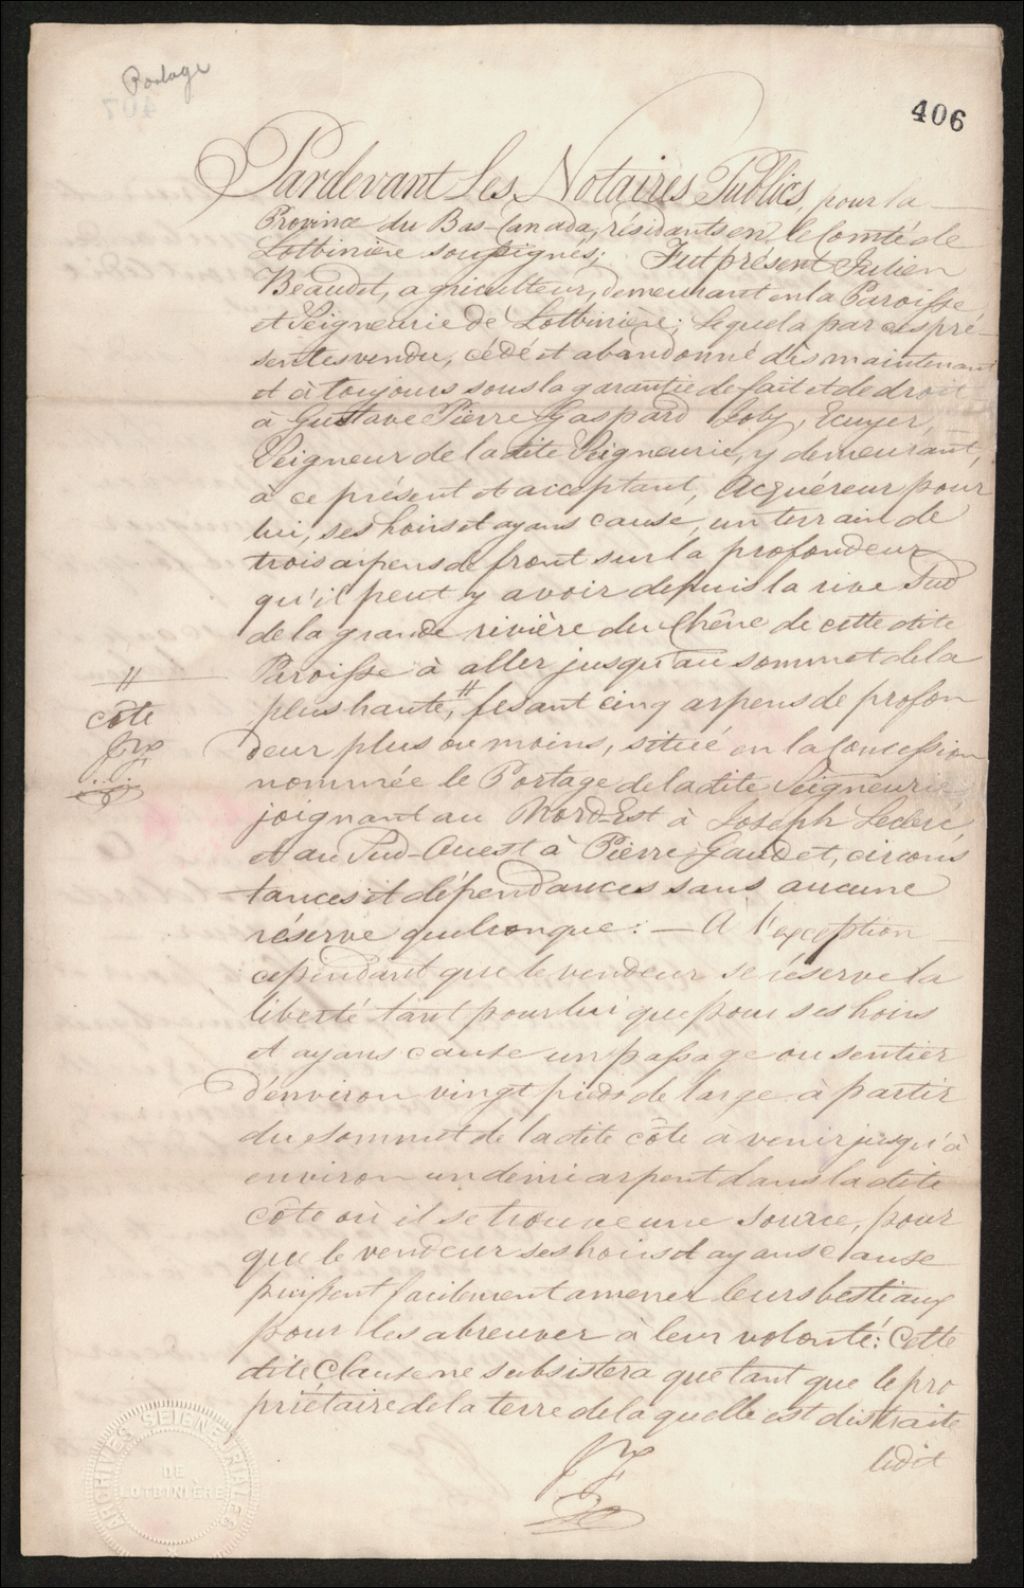 Portage
406
Pardevant Les Notaires Publics, pour la
Province du Bas-Canada, résidants en le Comté de
Lotbinière soussignés; Fut présent Julien
Beaudet, agriculteur, demeurant en la Paroisse
et Seigneurie de Lotbinière; Lequel a par ces pré-
sentes vendu, cédé et abandonné dès maintenant
et à toujours sous la garantie de fait et de droit
à Gustave Pierre Gaspard Joly, Ecuyer,
Seigneur de la dite Seigneurie, y demeurant,
à ce présent et acceptant, Acquéreur pour
lui, ses hoirs et ayans cause, un terrain de
trois arpens de front sur la profondeur
qu'il peut y avoir depuis la rive Sud
de la grande rivière du Chêne de cette dite
Paroisse à aller jusqu'au sommet de la
plus haute, // fesant cinq arpens de profon
deur plus ou moins, situé en la Concession
nommée le Portage de la dite Seigneurie,
joignant au Nord-Est à Joseph Leclerc,
et au Sud-Ouest à Pierre Gaudet, circons
tances et dépendances sans aucune
réserve quelconque: — A l'exception
cependant que le vendeur se réserve la
liberté tant pour lui que pour ses hoirs
et ayans cause un passage ou sentier
d'environ vingt pieds de large à partir
du sommet de la dite côte à venir jusqu'à
environ un demi arpent dans la dite
Côte où il se trouve une source, pour
que le vendeur ses hoirs et ayans cause
puissent facilement amener leurs bestiaux
pour les abreuver à leur volonté: Cette
dite Clause ne subsistera que tant que le pro
priétaire de la terre de laquelle est distraite
ledit
//
côte
ARCHIVES SEIGNEURIALES
DE
LOTBINIÈRE